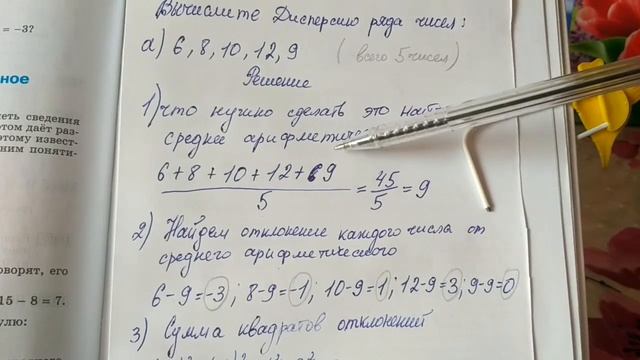 = −3?
ное
еть сведения
этом даёт раз-
оэтому извест-
ним поняти-
оворят, его
15 − 8 = 7.
улю:
Вычислите Дисперсию ряда чисел:
а) 6, 8, 10, 12, 9 (всего 5 чисел)
Решение
1) что нужно сделать это най
среднее арифметиче
6 + 8 + 10 + 12 + 9
5
= 45/5 = 9
2) Найдем отклонение каждого числа от
среднего арифметического
6−9=−3; 8−9=−1; 10−9=1; 12−9=3; 9−9=0
3) Сумма квадратов отклонений